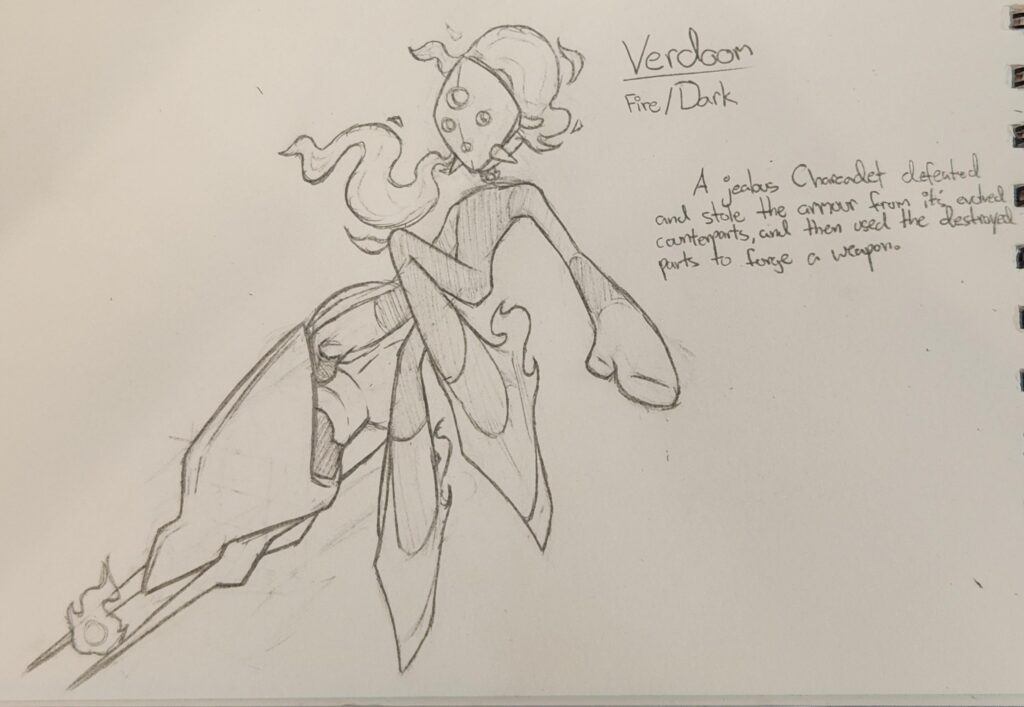 Verdoom
Fire/Dark
A jealous Charcadet defeated
and stole the armour from it's evolved
counterparts, and then used the destroyed
parts to forge a weapon.